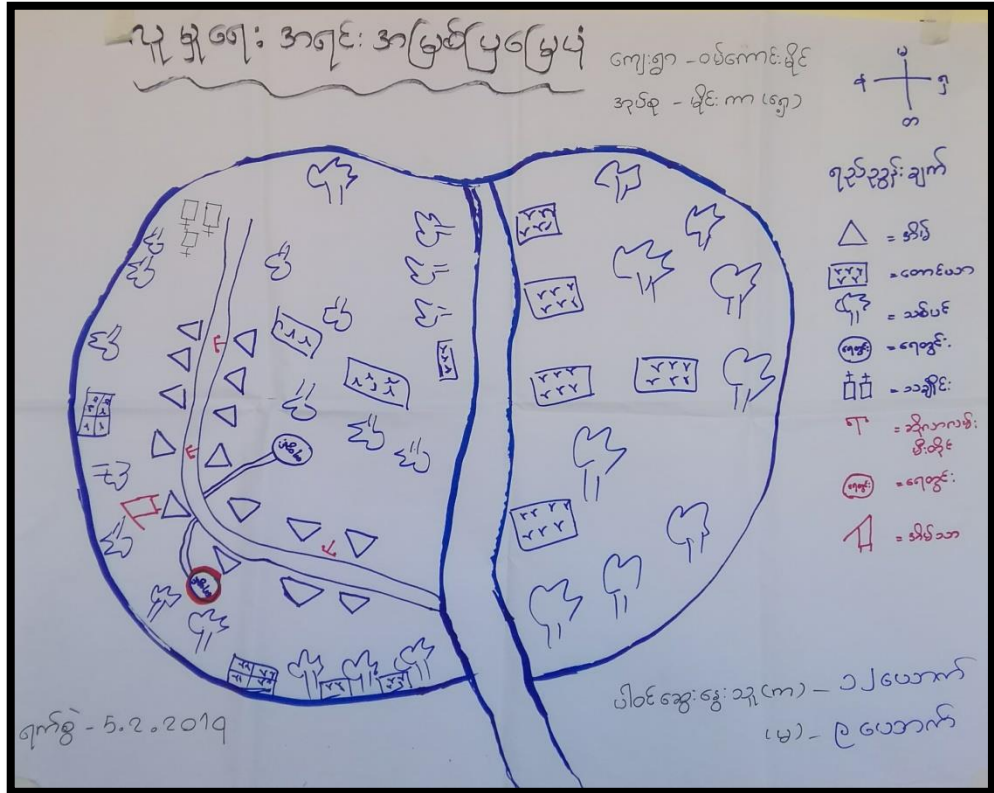 လူမှုရေး အရင်းအမြစ်ပြမြေပုံ
ကျေးရွာ - ဝမ်ကောင်းမိုင်
အုပ်စု - မိုင်းကာ (ရှေ့)
မ
န
ရှ
တ
ရည်ညွှန်းချက်
= အိမ်
= တောင်ယာ
= သစ်ပင်
ရေတွင်း = ရေတွင်း
= သချိုင်း
= ဆိုလာလမ်း
မီးတိုင်
ရေတွင်း = ရေတွင်း
= အိမ်သာ
ပါဝင်ဆွေးနွေးသူ (ကာ) - ၁၂ယောက်
(မ) - ၉ ယောက်
ရက်စွဲ - 5.2.2019